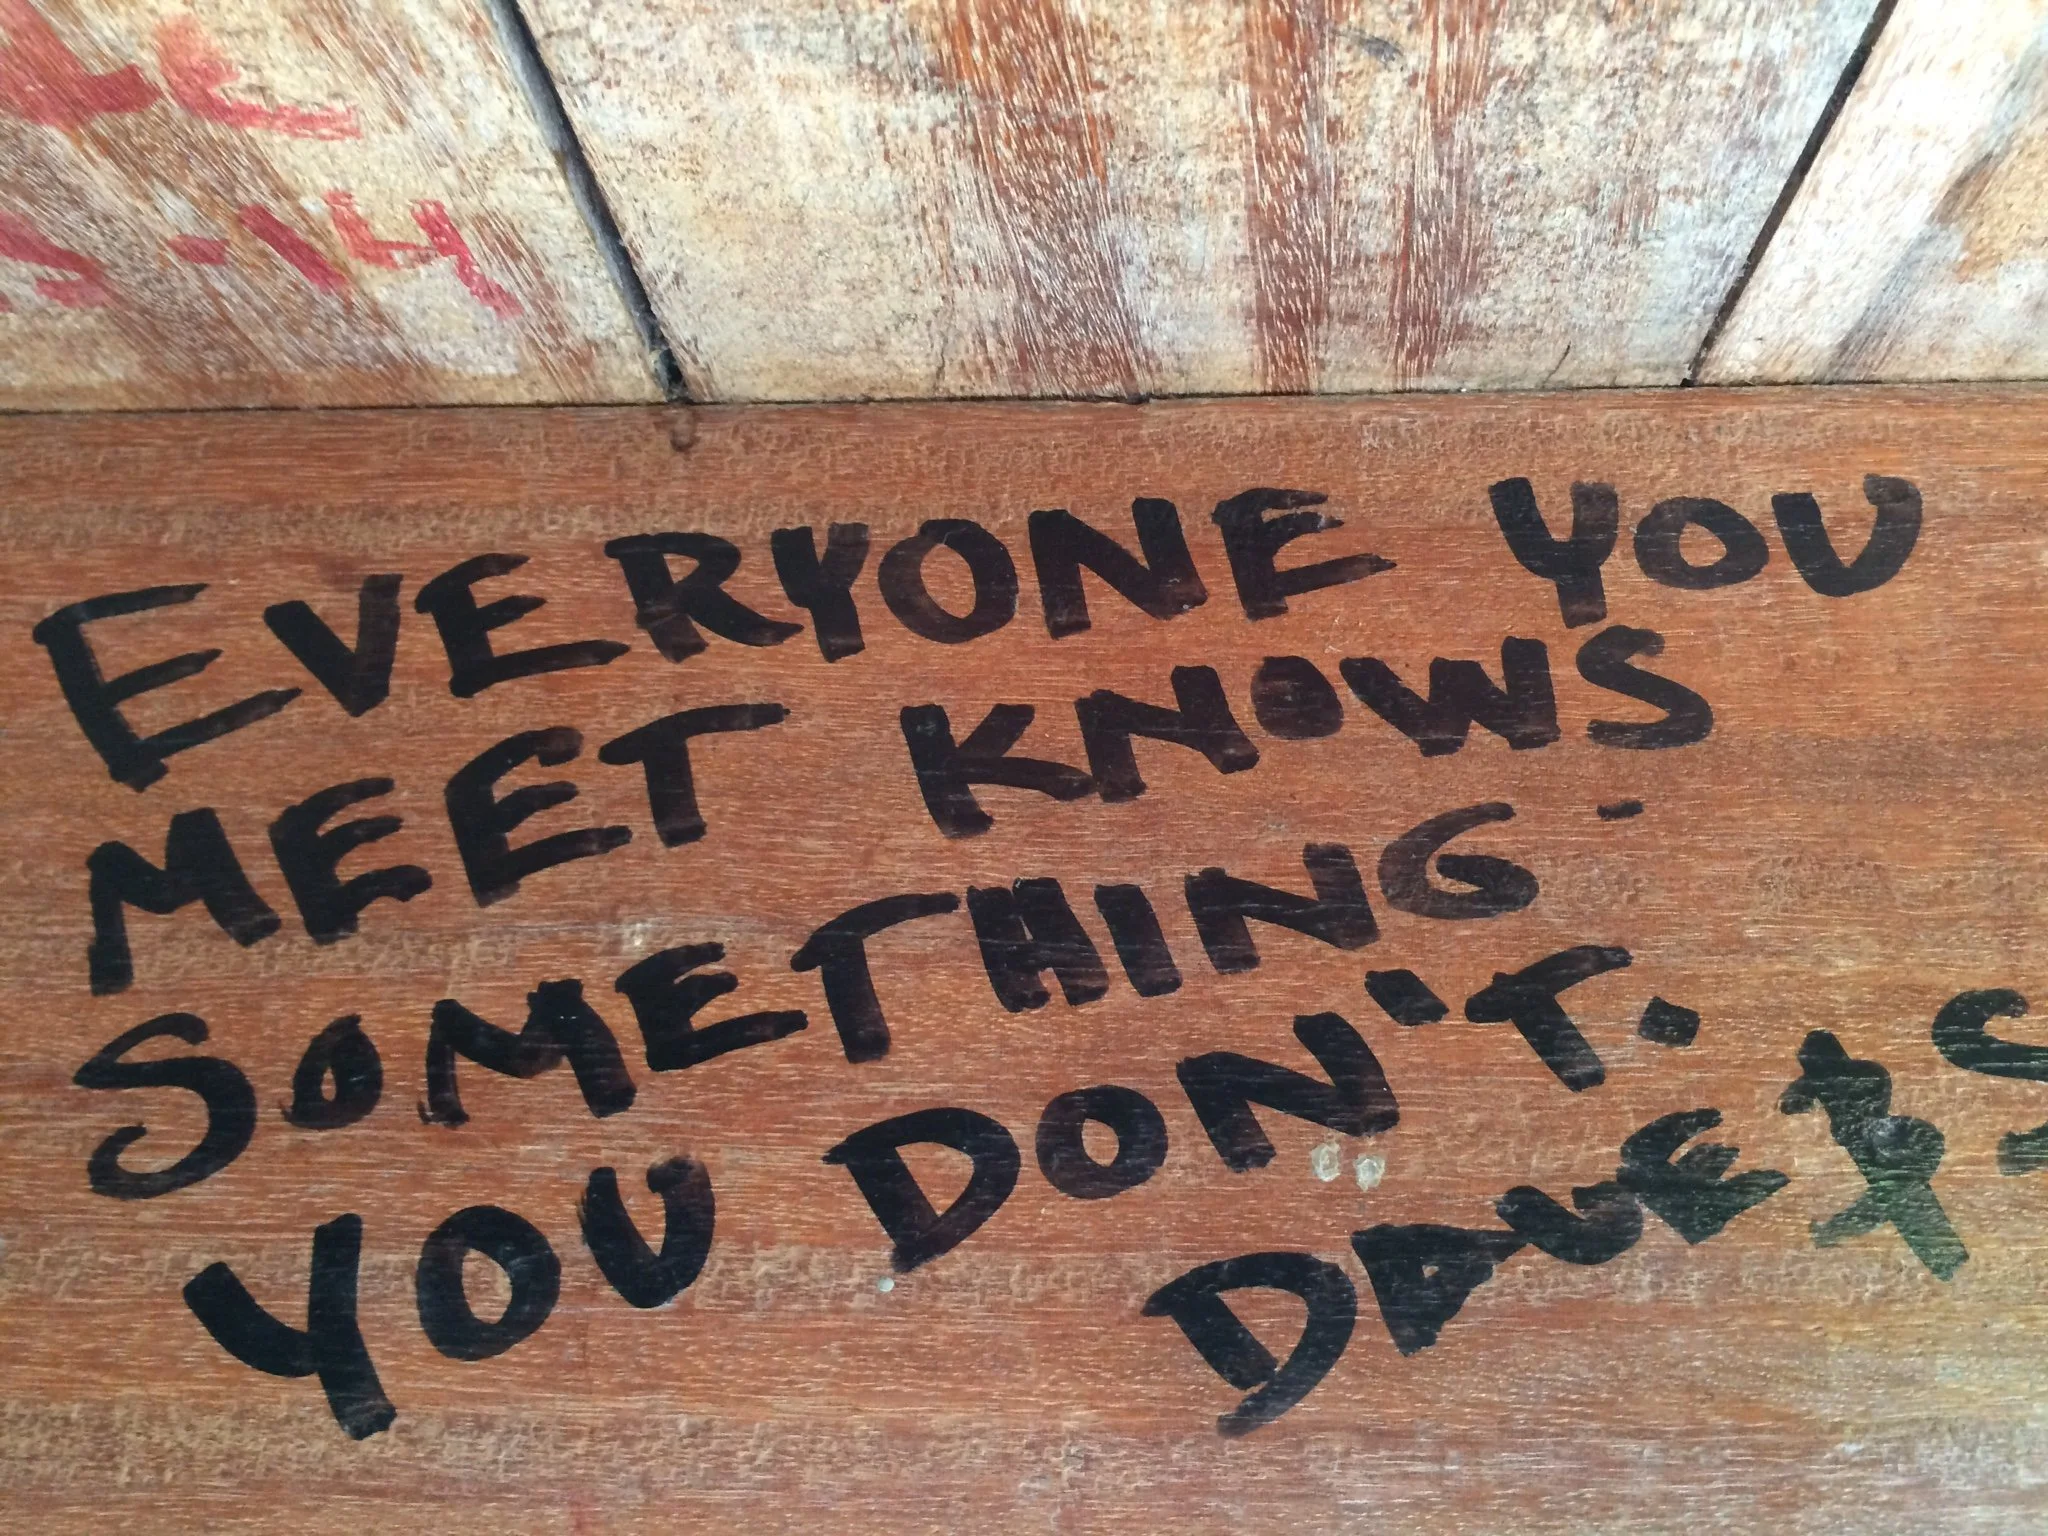 -14
EVERYONE YOU
MEET KNOWS
SOMETHING -
YOU DON'T.
DAVE & S